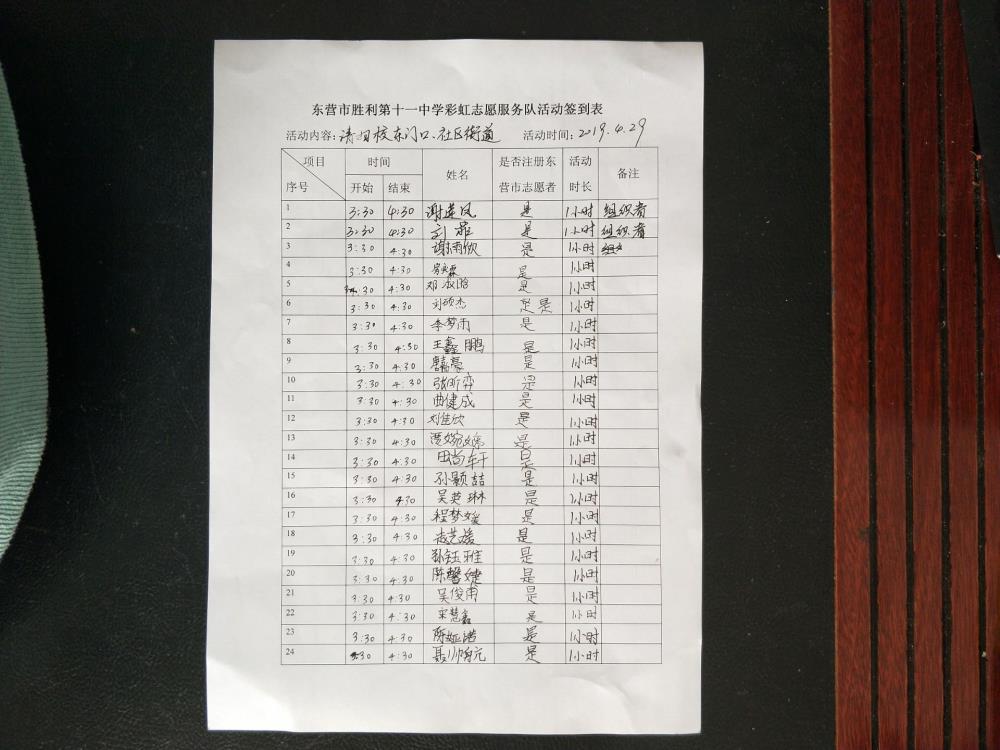 东营市胜利第十一中学彩虹志愿服务队活动签到表
活动内容：清扫校东门口、社区街道 活动时间：2019.4.29
项目 时间 姓名 是否注册东 活动 备注
序号 开始 结束 营市志愿者 时长
1 3:30 4:30 谢莲凤 是 1小时 组织者
2 3:30 4:30 刘菲 是 1小时 组织者
3 3:30 4:30 谢雨欣 是 1小时
4 3:30 4:30 是 1小时
5 3:30 4:30 邓淑晗 是 1小时
6 3:30 4:30 刘硕杰 是 1小时
7 3:30 4:30 李梦雨 是 1小时
8 3:30 4:30 王鑫鹏 是 1小时
9 3:30 4:30 是 1小时
10 3:30 4:30 张昕弈 是 1小时
11 3:30 4:30 曲健成 是 1小时
12 3:30 4:30 刘佳欣 是 1小时
13 3:30 4:30 贾婉婷 是 1小时
14 3:30 4:30 田尚轩 是 1小时
15 3:30 4:30 孙颢喆 是 1小时
16 3:30 4:30 吴英琳 是 1小时
17 3:30 4:30 程梦媛 是 1小时
18 3:30 4:30 是 1小时
19 3:30 4:30 孙钰雅 是 1小时
20 3:30 4:30 陈馨婕 是 1小时
21 3:30 4:30 吴俊甫 是 1小时
22 3:30 4:30 宋慧鑫 是 1小时
23 3:30 4:30 陈娅诺 是 1小时
24 3:30 4:30 聂帅元 是 1小时